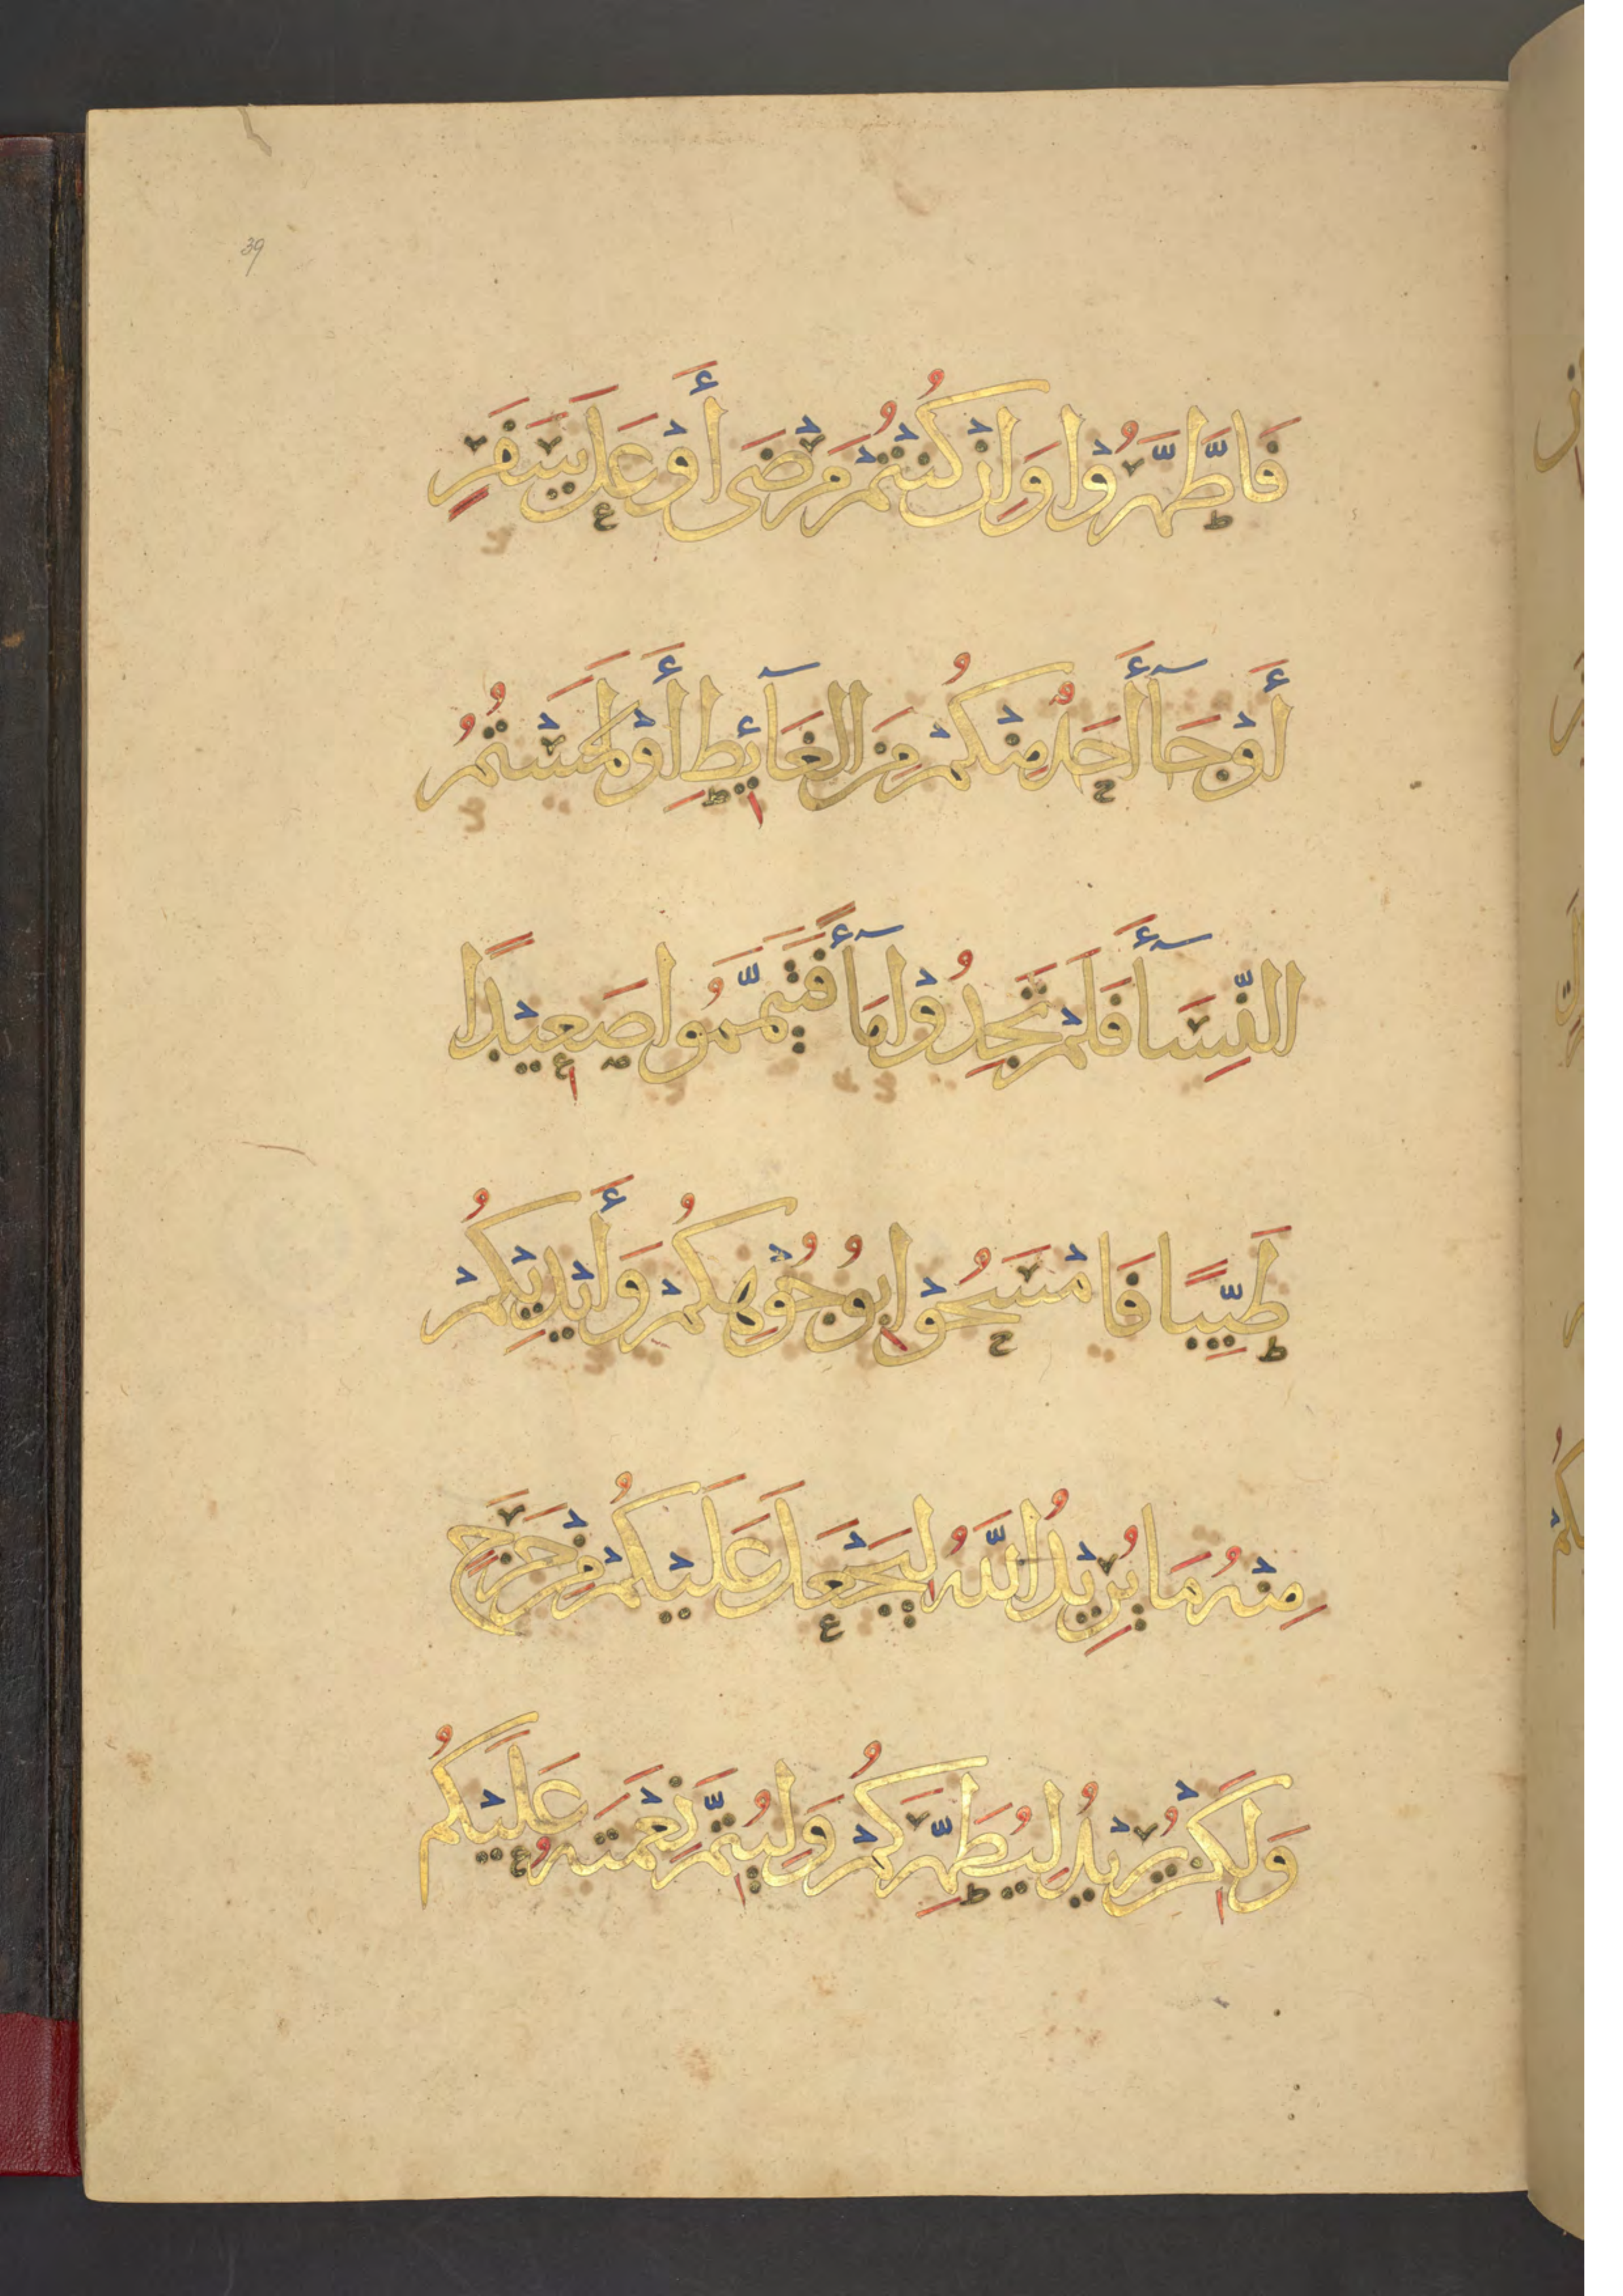 39
فَاطَّهَّرُوْا وَاِنْ كُنْتُمْ مَرْضَى أَوْ عَلَى سَفَرٍ
أَوْ جَآأَحَدٌ مِنْكُمْ مِنَ الْغَآئِطِ أَوْ لَمَسْتُمُ
النِّسَآأَ فَلَمْ تَجِدُوْا مَآأً فَتَيَمَّمُوا صَعِيْدًا
طَيِّبًا فَامْسَحُوْا بِوُجُوْهِكُمْ وَأَيْدِيْكُمْ
مِنْهُ مَا يُرِيْدُ اللَّهُ لِيَجْعَلَ عَلَيْكُمْ مِنْ حَرَجٍ
وَلَكِنْ يُرِيْدُ لِيُطَهِّرَكُمْ وَلِيُتِمَّ نِعْمَتَهُ عَلَيْكُمْ